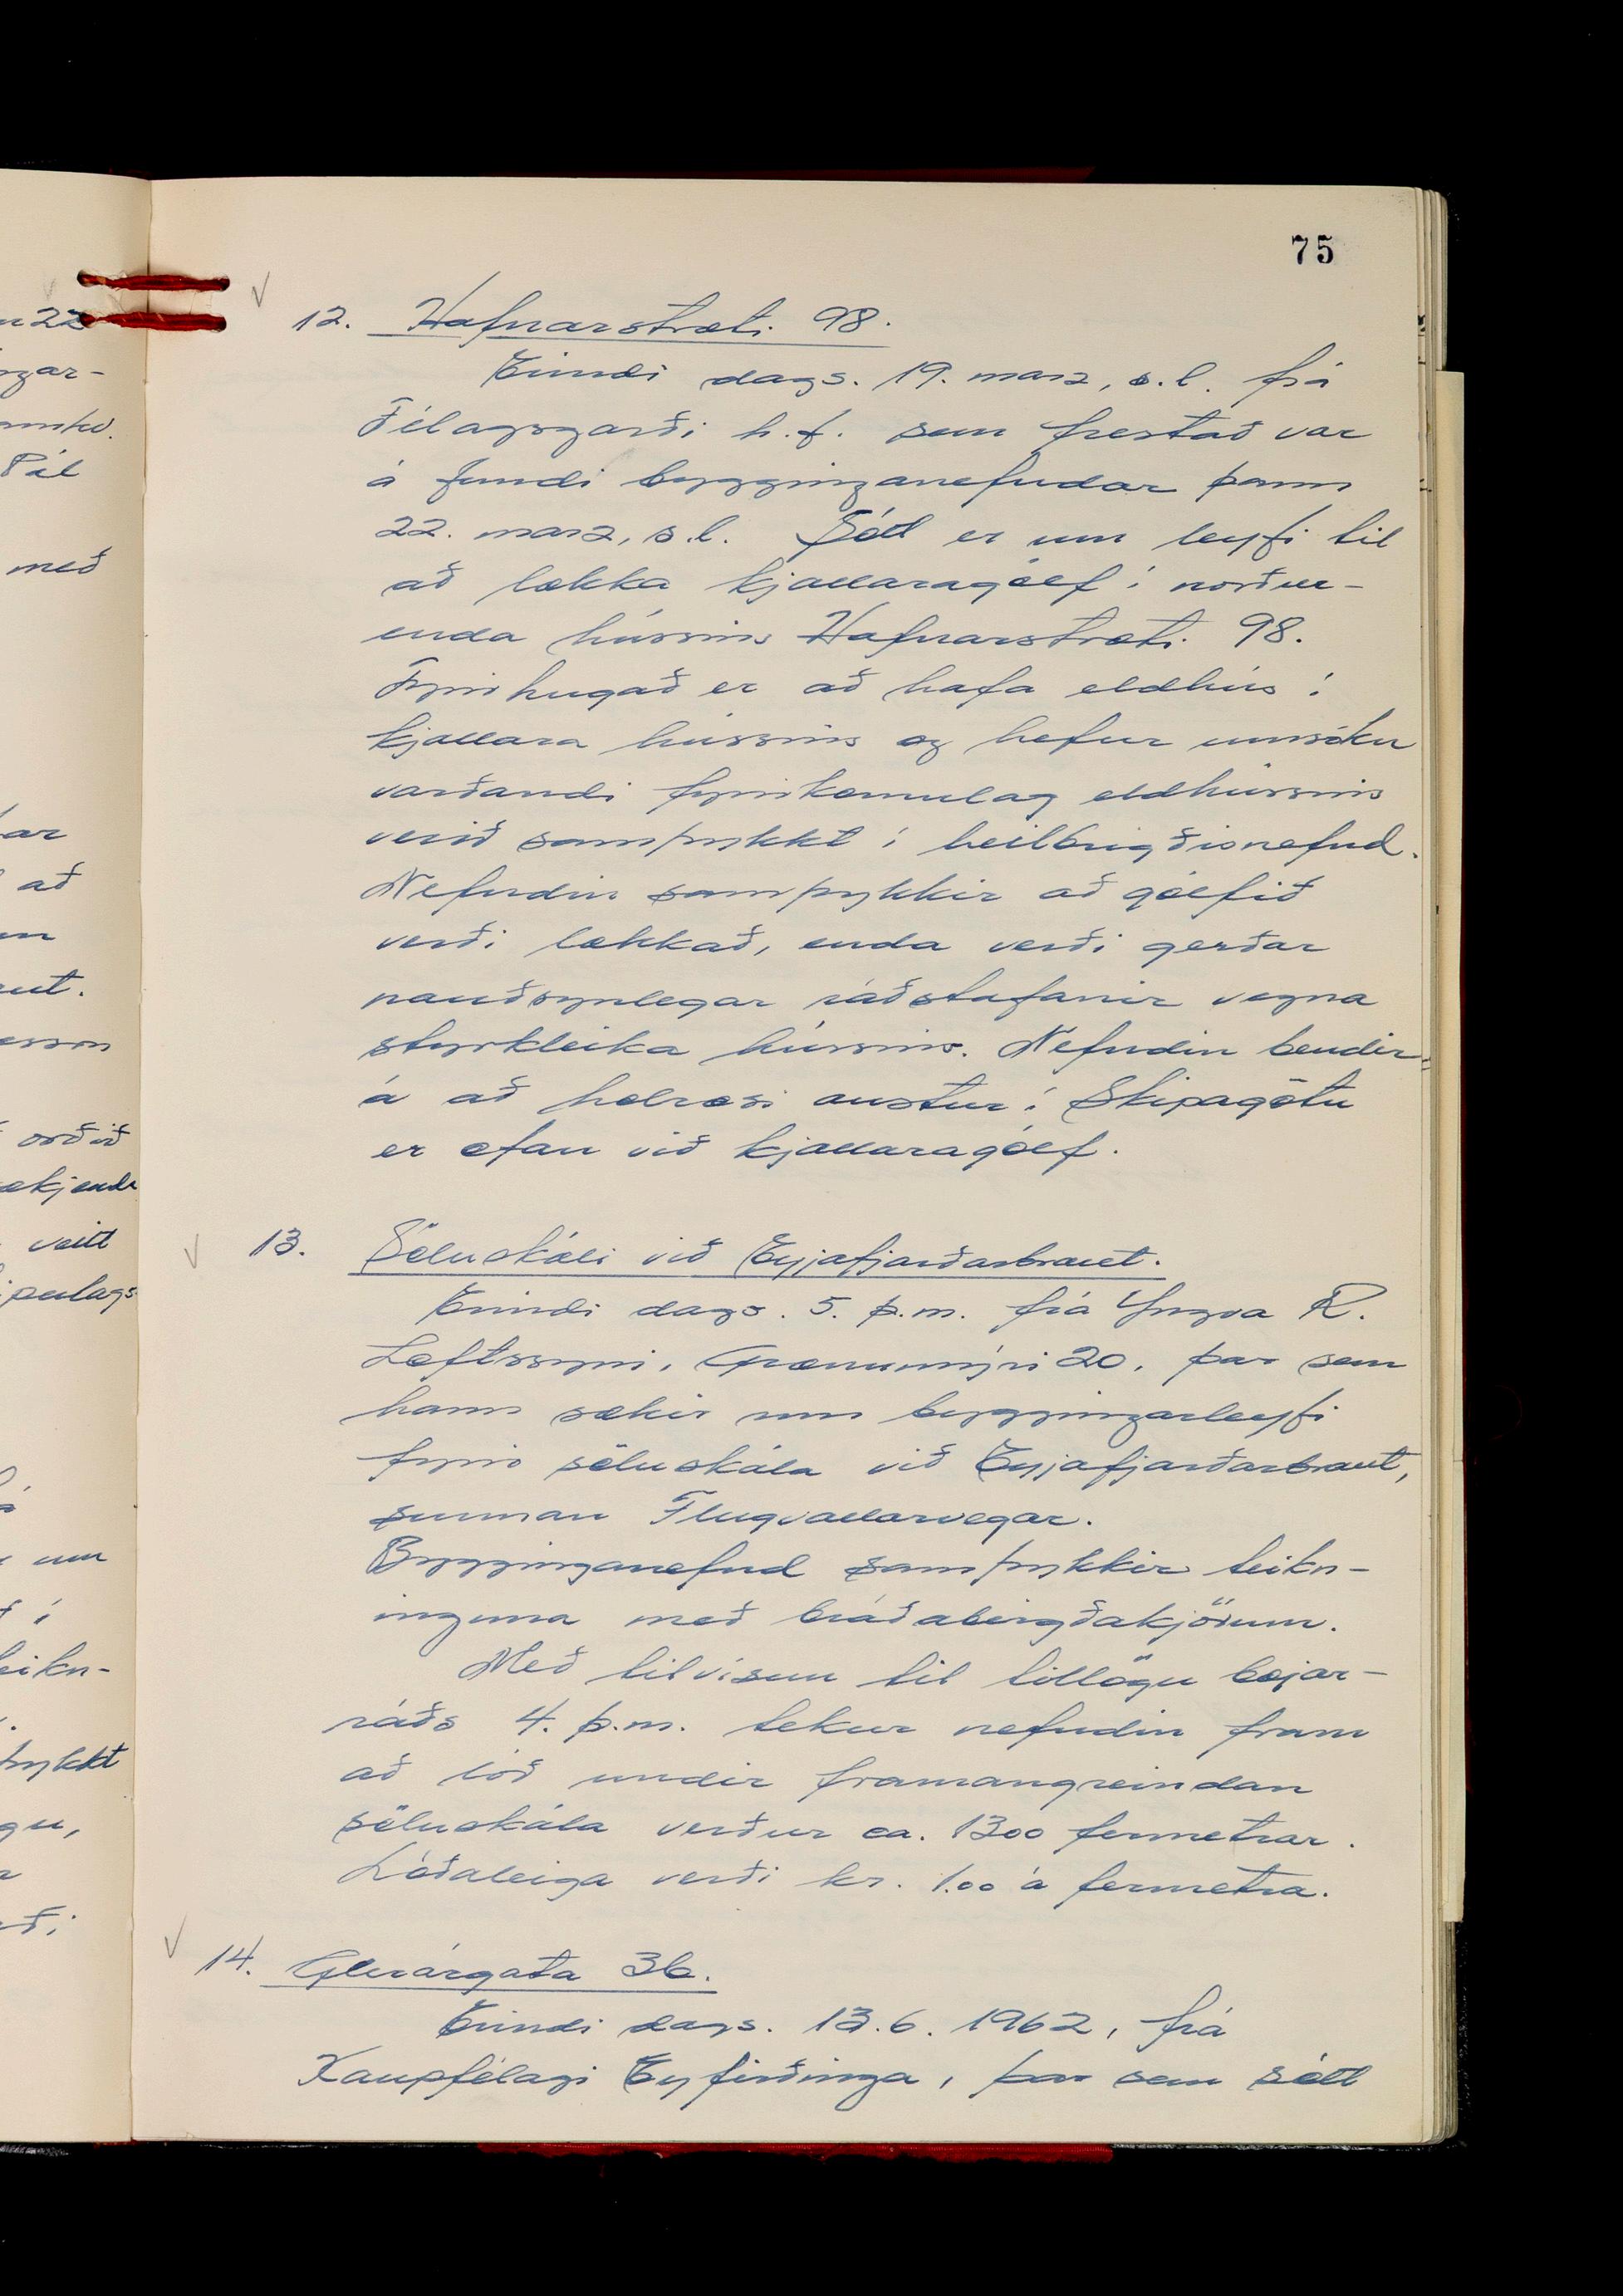 75
12. Hafnarstræti 98.
Erindi dags. 19. marz, s.l. frá
Félagsgarði h.f. sem frestað var
á fundi bygginganefndar þann
22. marz, s.l. Sótt er um leyfi til
að lækka kjallaragólf í norður-
enda hússins Hafnarstræti 98.
Fyrirhugað er að hafa eldhús í
kjallara hússins og hefur umsókn
varðandi fyrirkomulag eldhússins
verið samþykkt í heilbrigðisnefnd.
Nefndin samþykkir að gólfið
verði lækkað, enda verði gerðar
nauðsynlegar ráðstafanir vegna
styrkleika hússins. Nefndin bendir
á að holræsi austur í Skipagötu
er ofan við kjallaragólf.
13. Söluskáli við Eyjafjarðarbraut.
Erindi dags. 5. þ.m. frá Yngva R.
Loftssyni, Grænumýri 20, þar sem
hann sækir um byggingarleyfi
fyrir söluskála við Eyjafjarðarbraut,
sunnan Flugvallarvegar.
Bygginganefnd samþykkir teikn-
inguna með bráðabirgðakjörum.
Með tilvísun til tillögu bæjar-
ráðs 4. þ.m. tekur nefndin fram
að lóð undir framangreindan
söluskála verður ca. 1300 fermetrar.
Lóðaleiga verði kr. 1.00 á fermetra.
14. Glerárgata 36.
Erindi dags. 13.6. 1962, frá
Kaupfélagi Eyfirðinga, þar sem sótt